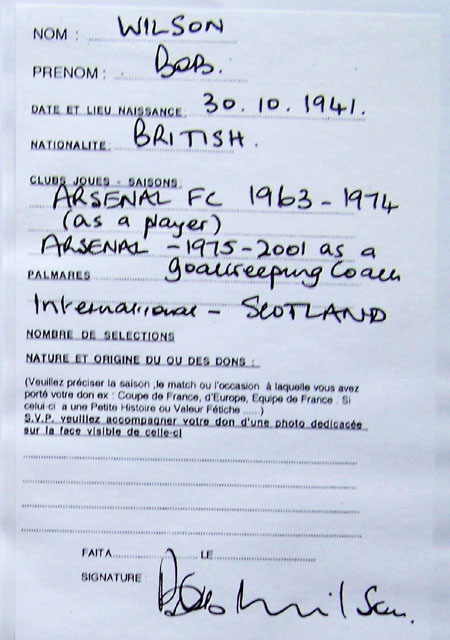 NOM : WILSON
PRENOM : BOB.
DATE ET LIEU NAISSANCE: 30.10.1941.
NATIONALITE: BRITISH.
CLUBS JOUES - SAISONS:
ARSENAL FC 1963-1974
(as a player)
ARSENAL -1975-2001 as a
PALMARES goalkeeping Coach
International - SCOTLAND
NOMBRE DE SELECTIONS
NATURE ET ORIGINE DU OU DES DONS :
(Veuillez préciser la saison ,le match ou l'occasion à laquelle vous avez
porté votre don ex : Coupe de France, d'Europe, Equipe de France . Si
celui-ci a une Petite Histoire ou Valeur Fétiche ......)
S.V.P. veuillez accompagner votre don d'une photo dedicacée
sur la face visible de celle-ci
FAIT A LE
SIGNATURE : Bob Wilson.